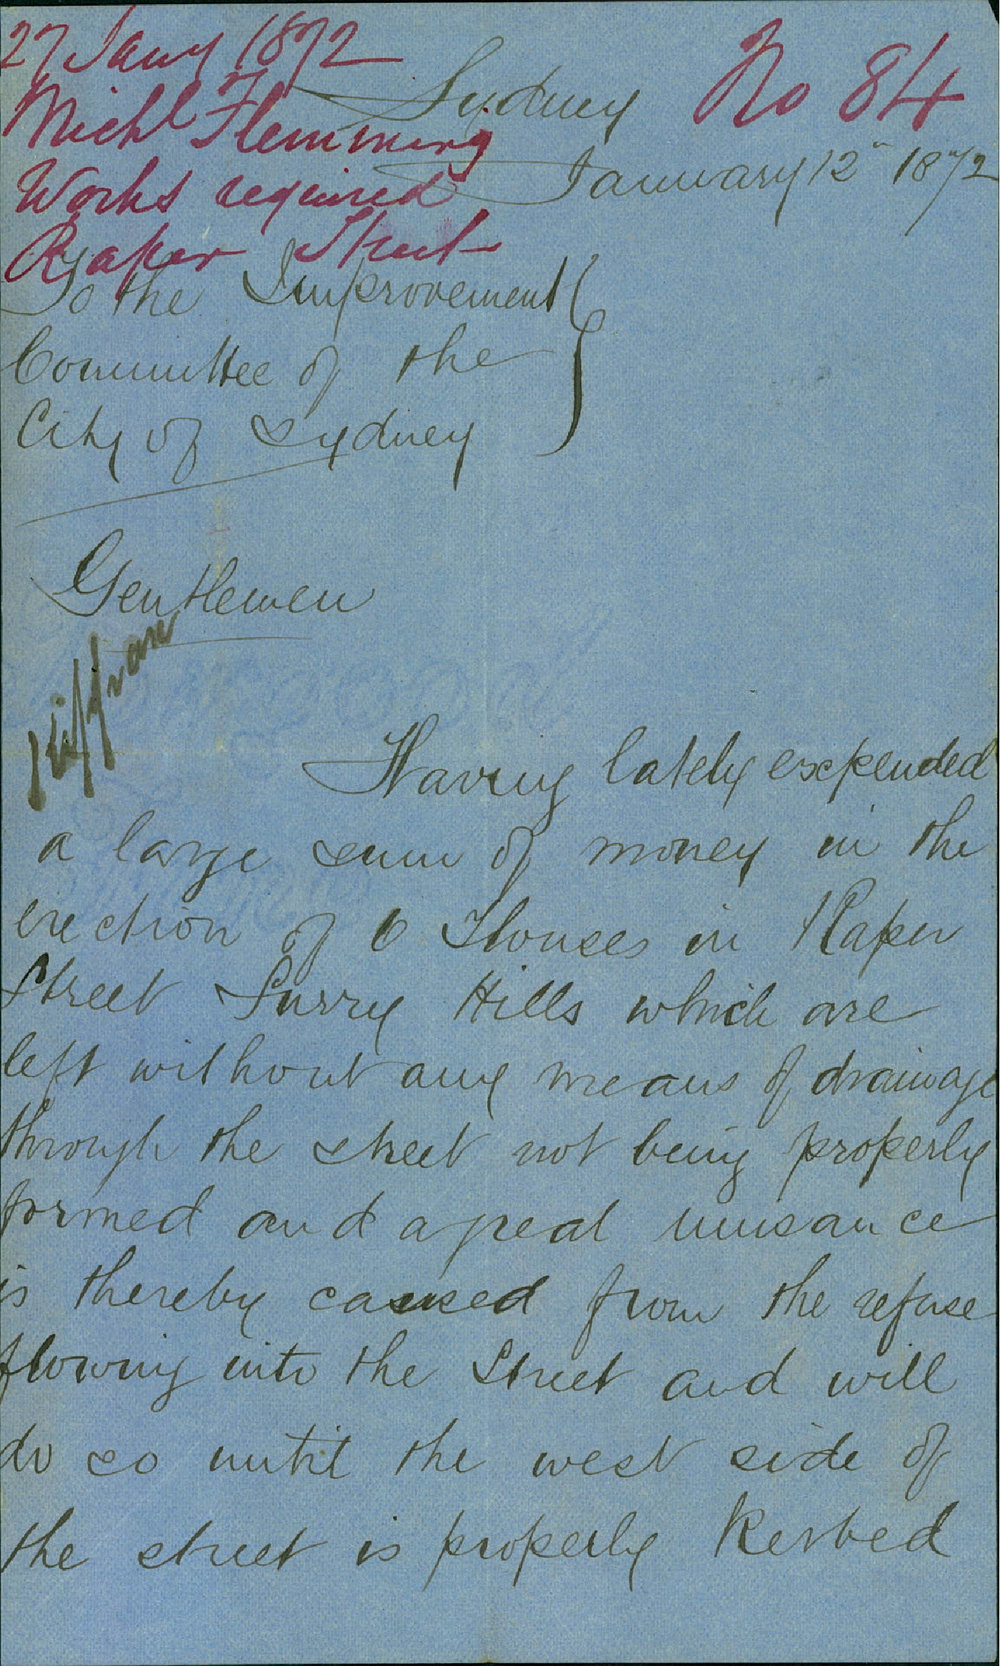 27 Jany 1872
Michl Flemming
Works required
Raper Street
No 84
Sydney
January 12" 1872
To the Improvement
Committee of the
City of Sydney
Gentlemen
Having lately expended
a large sum of money in the
erection of 6 Houses in Raper
Street Surry Hills which are
left without any means of drainage
through the street not being properly
formed and a great nuisance
is thereby caused from the refuse
flowing into the Street and will
do so until the west side of
the street is properly Kerbed